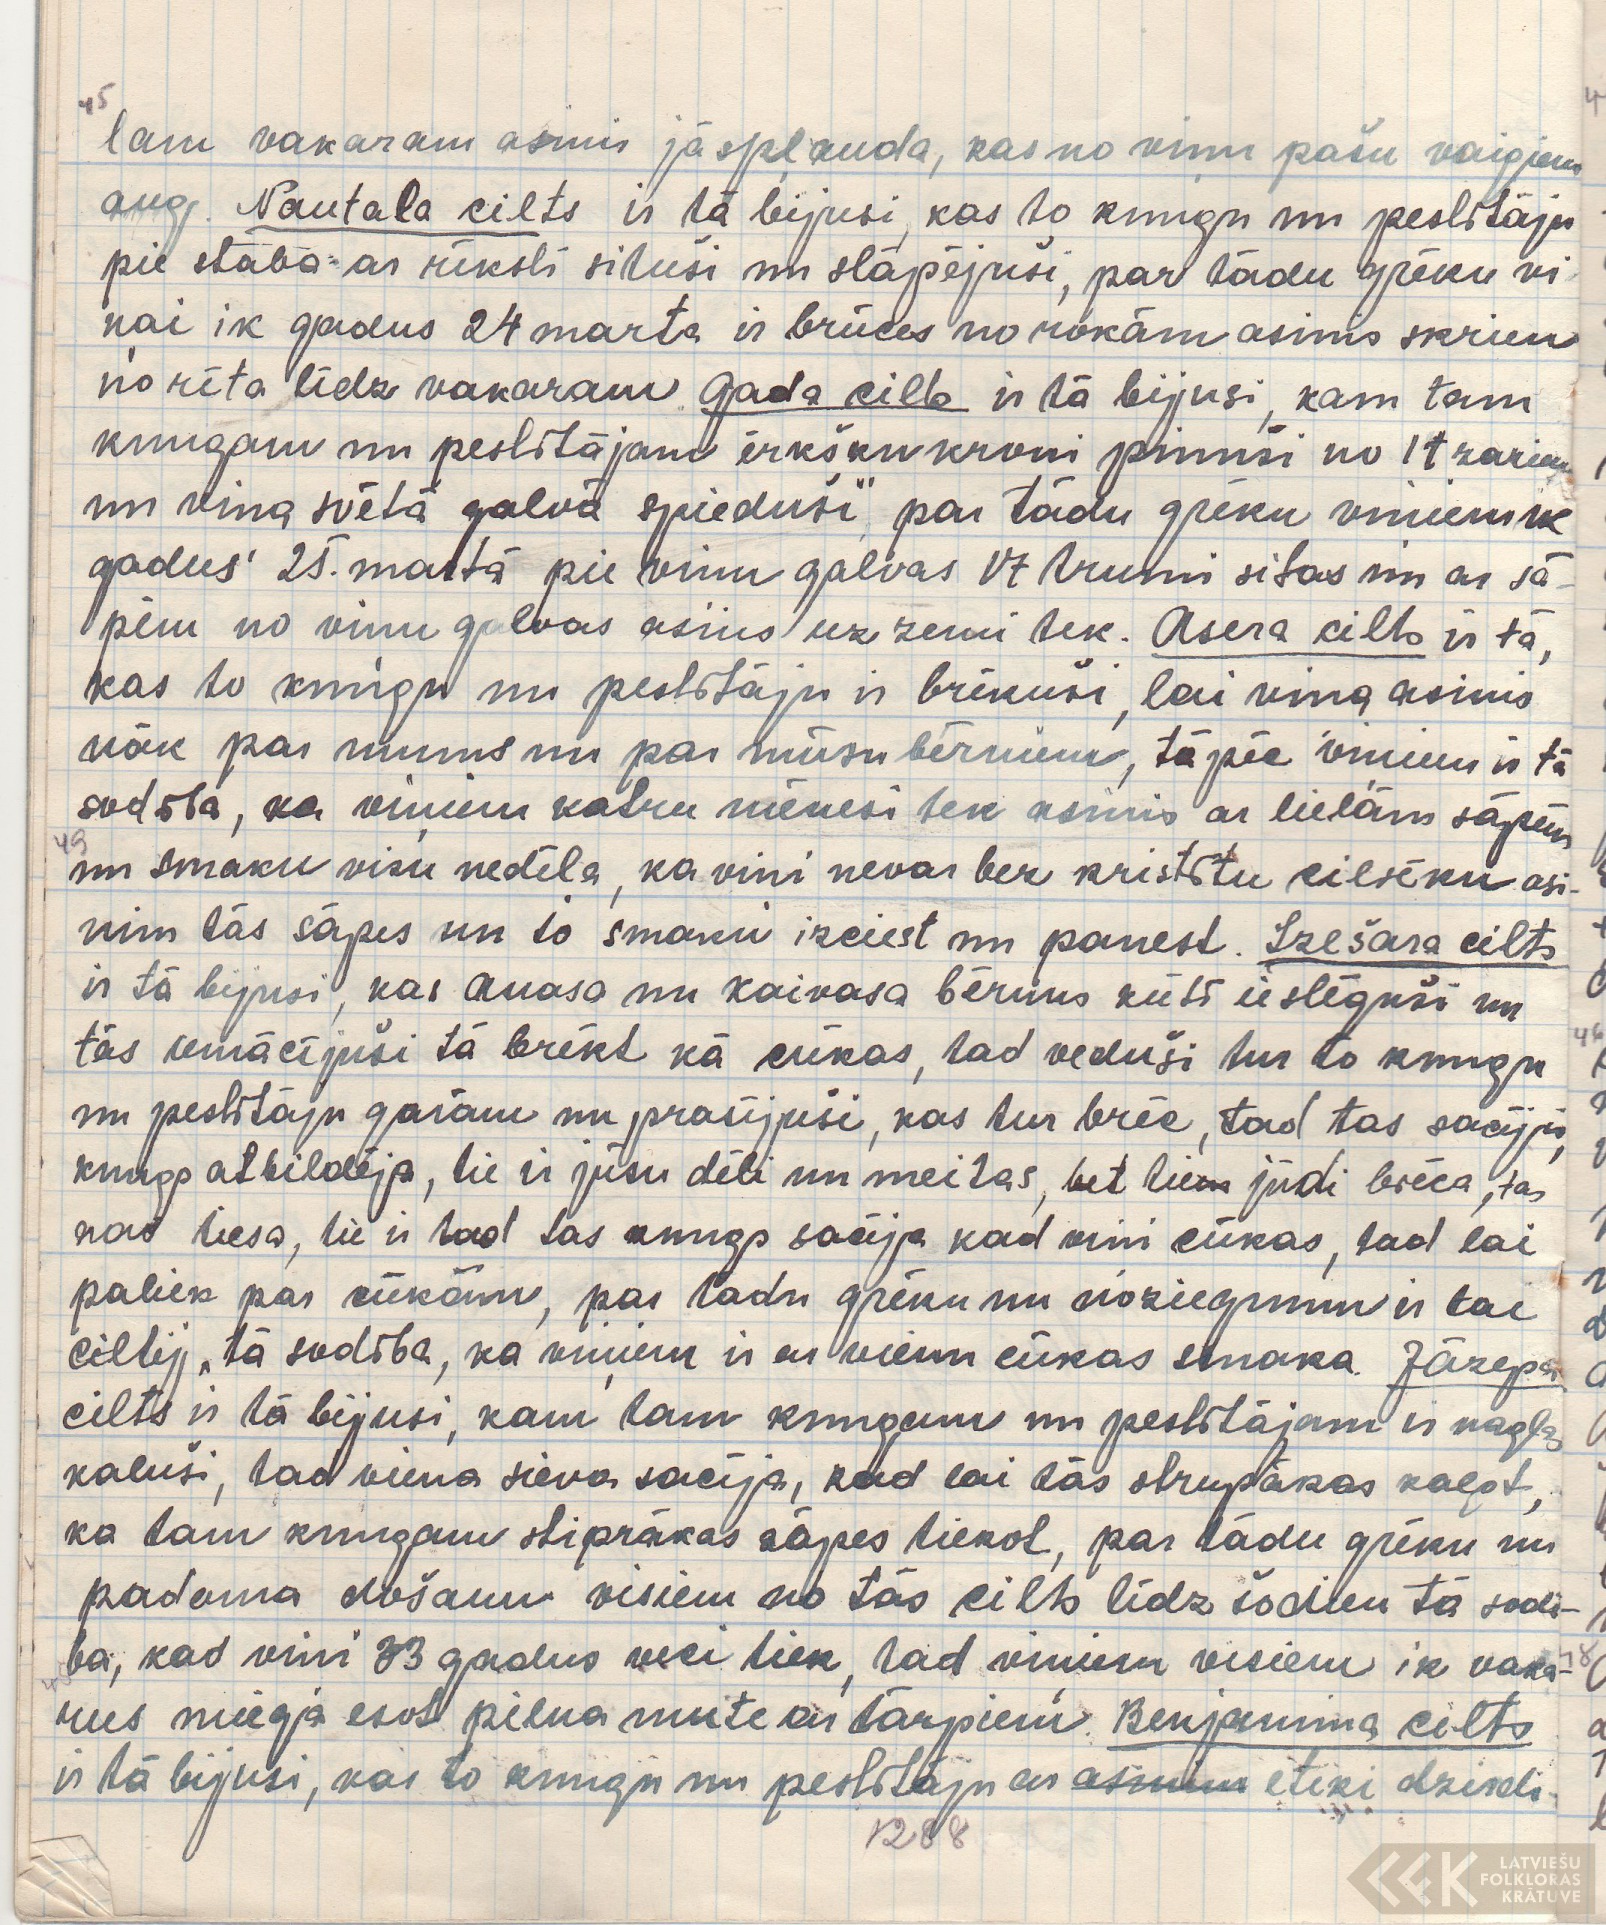 45
lam vakaram asinis jāspļauda, kas no viņu pašu vaigiem
aug. Nautala cilts ir tā bijusi, kas to kungu un pestītāju
pie staba ar rīksti situši un slāpējuši, par tādu grēku vi
ņai ik gadus 24 marta ir brūces no rokām asinis skrien
no rīta līdz vakaram. Gada cilts ir tā bijusi, kam tam
kungam un pestītājam ērkšķu kroni pinuši no 17 zariem
un viņa svētā galvā spieduši" par tādu grēku viniem ik
gadus 25. martā pie vinu galvas 17 trumi sitas un ar sā-
pēm no vinu galvas asinis uz zemi tek. Asera cilts ir tā,
kas to kungu un pestītāju ir brēkuši, lai vina asinis
nāk par mums un par mūsu bērniem, tāpēc viniem ir tā
sodība, ka viņiem katru mēnesi tek asinis ar lielām sāpēm
49
un smaku visu nedēla, ka vini nevar bez kristītu cilvēku asi-
nim tās sāpes un to smaku izciest un panest. Izešara cilts
ir tā bijusi, kas Anasa un Kaivasa bērnus kūtī ieslēguši un
tās iemācījuši tā brēkt kā cūkas, tad veduši tur to kungu
un pestītāju garām un prasījuši, kas tur brēc, tad tas sacījis,
kungs atbildēja, tie ir jūsu dēli un meitas, bet tie jūdi brēca, tas
nav tiesa, tie ir tad tas kungs sacīja kad vini cūkas, tad lai
paliek par cūkām, par tādu grēku un noziegumu ir tai
ciltij, tā sodība, ka viņiem ir ar vienu cūkas smaka. Jāzepa
cilts ir tā bijusi, kam tam kungam un pestītājam ir naglas
kaluši, tad viena sieva sacīja, kad lai tās strupākas kalot,
ka tam kungam stiprākas sāpes tiekot, par tādu grēku un
padoma došanu visiem no tās cilts līdz šodien tā sodī-
ba, kad vini 33 gadus veci tiek, tad viniem visiem ik vaka-
rus miegā esot pilna mute ar tārpiem. Benjamina cilts
ir tā bijusi, kas to kungu un pestītāju ar etiķi dzirdi-
1288
LATVIEŠU
FOLKLORAS
KRĀTUVE